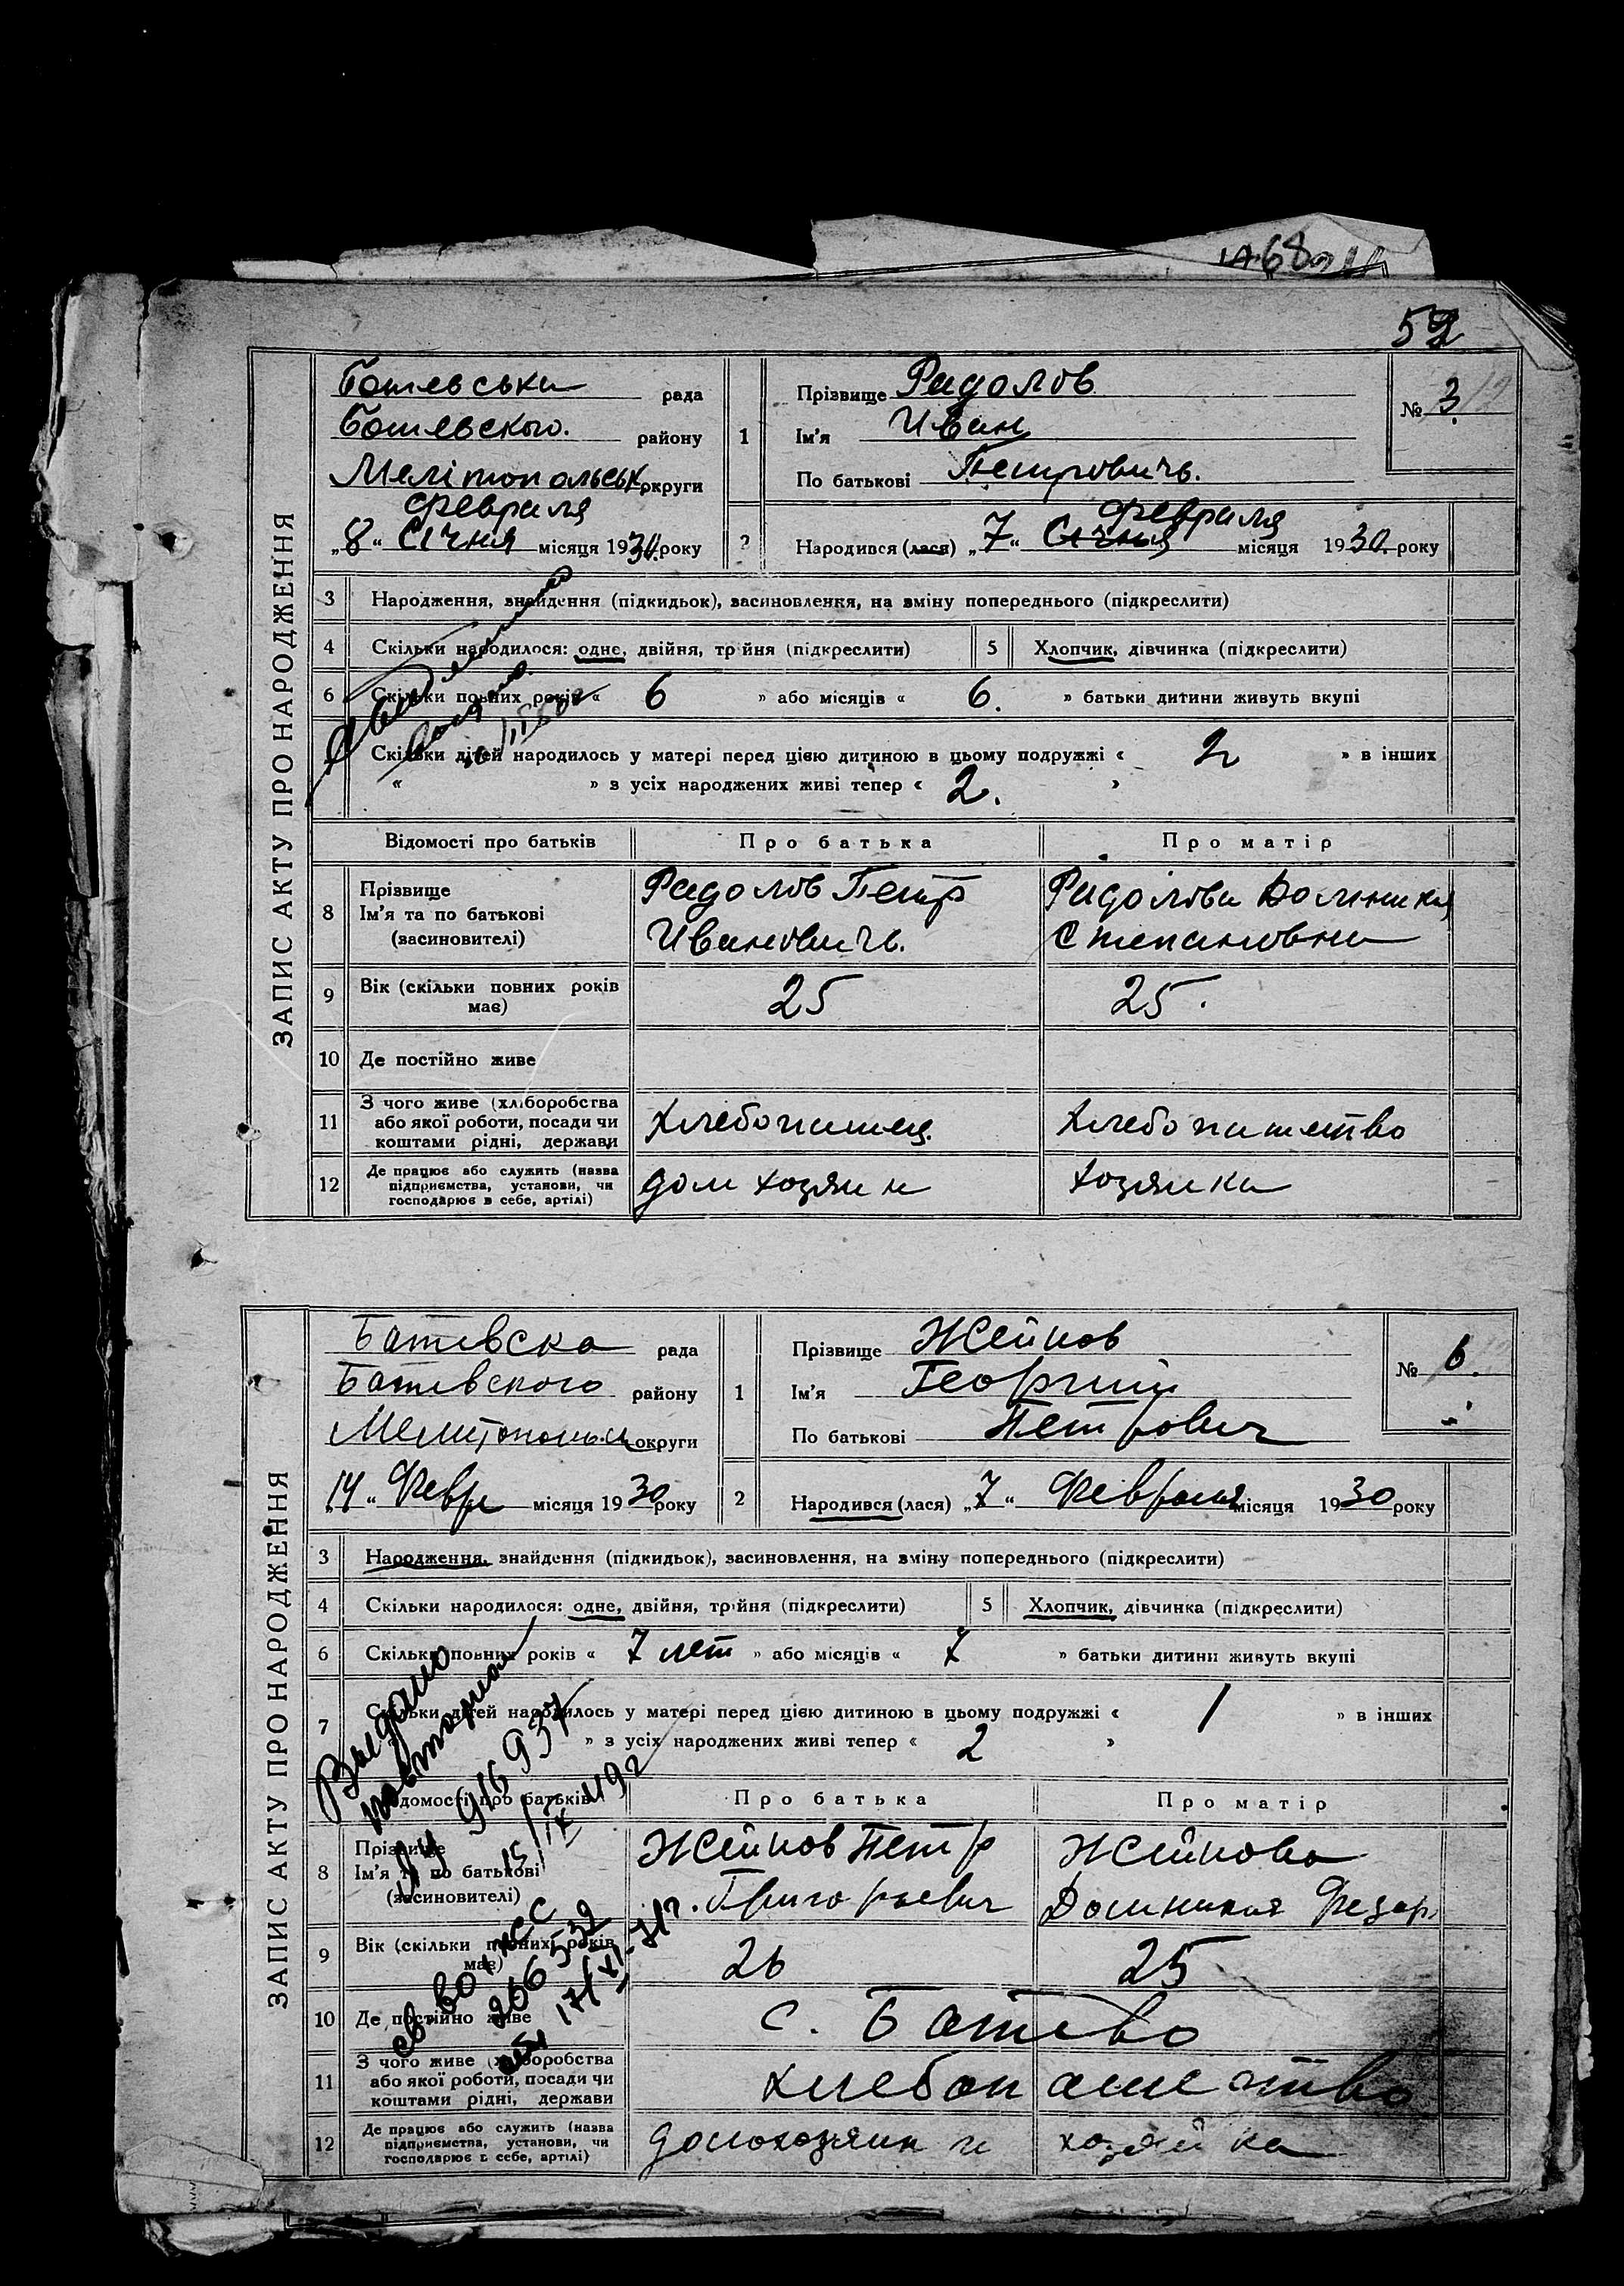 52
ЗАПИС АКТУ ПРО НАРОДЖЕННЯ
Ботевська рада
Ботевского. району
Мелітопольськ. округи
Февраля
„8“ Січня місяця 1930 року
1
Прізвище Радолов
Ім'я Иван
По батькові Петровичъ.
№ 3
2
Февраля
Народився (лася) „7“ Січня місяця 1930. року
3 Народження, знайдення (підкидьок), засиновлення, на зміну попереднього (підкреслити)
4 Скільки народилося: одне, двійня, трійня (підкреслити) 5 Хлопчик, дівчинка (підкреслити)
6 Скільки повних років « 6 » або місяців « 6. » батьки дитини живуть вкупі
Скільки дітей народилось у матері перед цією дитиною в цьому подружжі « 2 » в інших
« » з усіх народжених живі тепер « 2. »
Відомості про батьків Про батька Про матір
8 Прізвище Ім'я та по батькові (засиновителі)
Радолов Петр Ивановичъ.
Радолова Домникия Степановна
9 Вік (скільки повних років має) 25 25.
10 Де постійно живе
11 З чого живе (хліборобства або якої роботи, посади чи коштами рідні, держави
Хлебопашец. Хлебопашество
12 Де працює або служить (назва підприємства, установи, чи господарює в себе, артілі)
дом хозяин хозяйка
ЗАПИС АКТУ ПРО НАРОДЖЕННЯ
Ботевска рада
Ботевского району
Мелитопольск округи
„14“ Февр місяця 1930 року
1
Прізвище Жейнов
Ім'я Георгий
По батькові Петрович
№ 6.
2 Народився (лася) „7“ Февраля місяця 1930 року
3 Народження, знайдення (підкидьок), засиновлення, на зміну попереднього (підкреслити)
4 Скільки народилося: одне, двійня, трійня (підкреслити) 5 Хлопчик, дівчинка (підкреслити)
6 Скільки повних років « 7 лет » або місяців « 7 » батьки дитини живуть вкупі
7 Скільки дітей народилось у матері перед цією дитиною в цьому подружжі « 1 » в інших
» з усіх народжених живі тепер « 2 »
Выдано
повторное
916937
Відомості про батьків Про батька Про матір
8 Прізвище Ім'я та по батькові (засиновителі)
Жейнов Петр Григорьевич
Жейнова Домникия Федор
9 Вік (скільки повних років має) 26 25
10 Де постійно живе с. Ботево
11 З чого живе (хліборобства або якої роботи, посади чи коштами рідні, держави
хлебопашество
12 Де працює або служить (назва підприємства, установи, чи господарює в себе, артілі)
домохозяин хозяйка